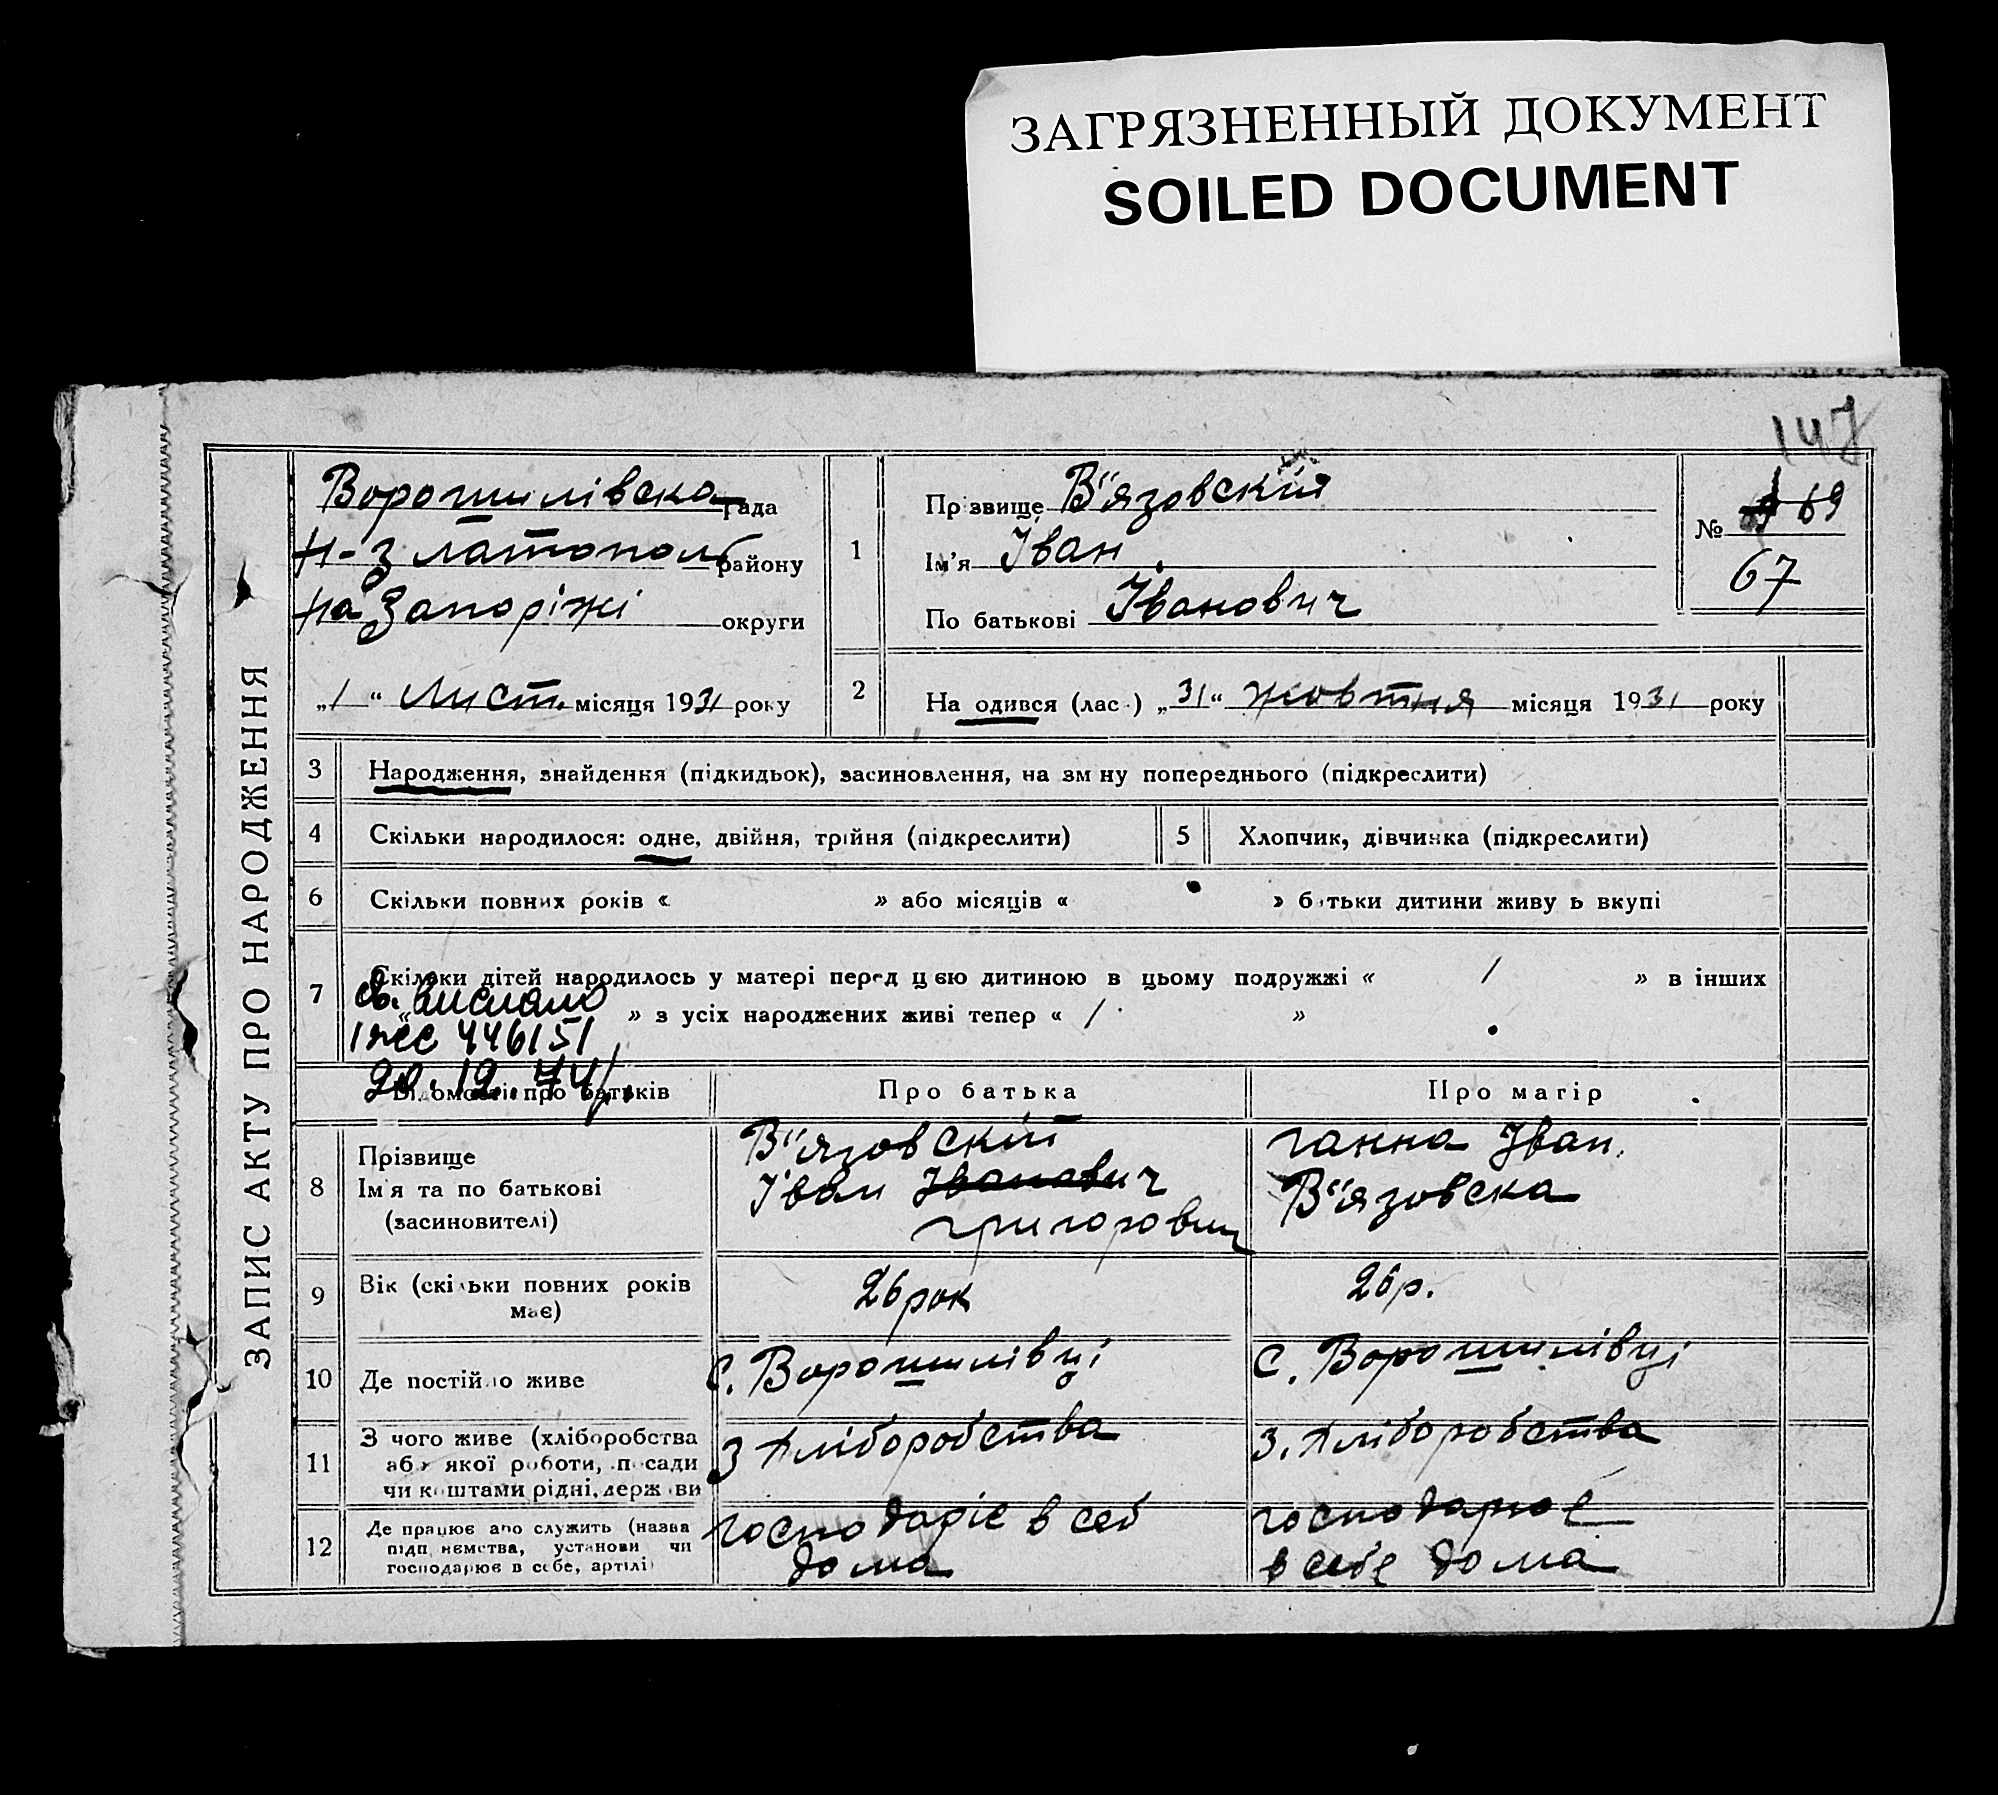 ЗАГРЯЗНЕННЫЙ ДОКУМЕНТ
SOILED DOCUMENT
147
ЗАПИС АКТУ ПРО НАРОДЖЕННЯ
Ворошилівска рада
Н-Златополь району
На Запоріжі округи
„1“ Лист. місяця 1931 року
1
Прізвище В"язовский
Ім'я Іван
По батькові Іванович
№ 69
67
2
На одився (лас ) „31“ жовтня місяця 1931 року
3 Народження, знайдення (підкидьок), засиновлення, на зм ну попереднього (підкреслити)
4 Скільки народилося: одне, двійня, трійня (підкреслити) 5 Хлопчик, дівчинка (підкреслити)
6 Скільки повних років « » або місяців « » б тьки дитини живу ь вкупі
7 Скільки дітей народилось у матері перед цією дитиною в цьому подружжі « 1 » в інших
„ » з усіх народжених живі тепер « 1 »
св. вислано
1 жс 446151
20.12.74
Відомости про батьків Про батька Про матір
8 Прізвище
Ім'я та по батькові
(засиновителі)
В"язовский
Іван Іванович
Григорович
Ганна Іван.
В"язовска
9 Вік (скільки повних років
має)
26 рок
26 р.
10 Де постійно живе
с. Ворошилівці
с. Ворошилівці
11 З чого живе (хліборобства
або якої роботи, посади
чи коштами рідні, держ ви
З Хліборобства
З. Хліборобства
12 Де працює або служить (назва
підп иємства, установи чи
господарює в себе, артілі)
господаріє в себ
дома
господарює
в себе дома